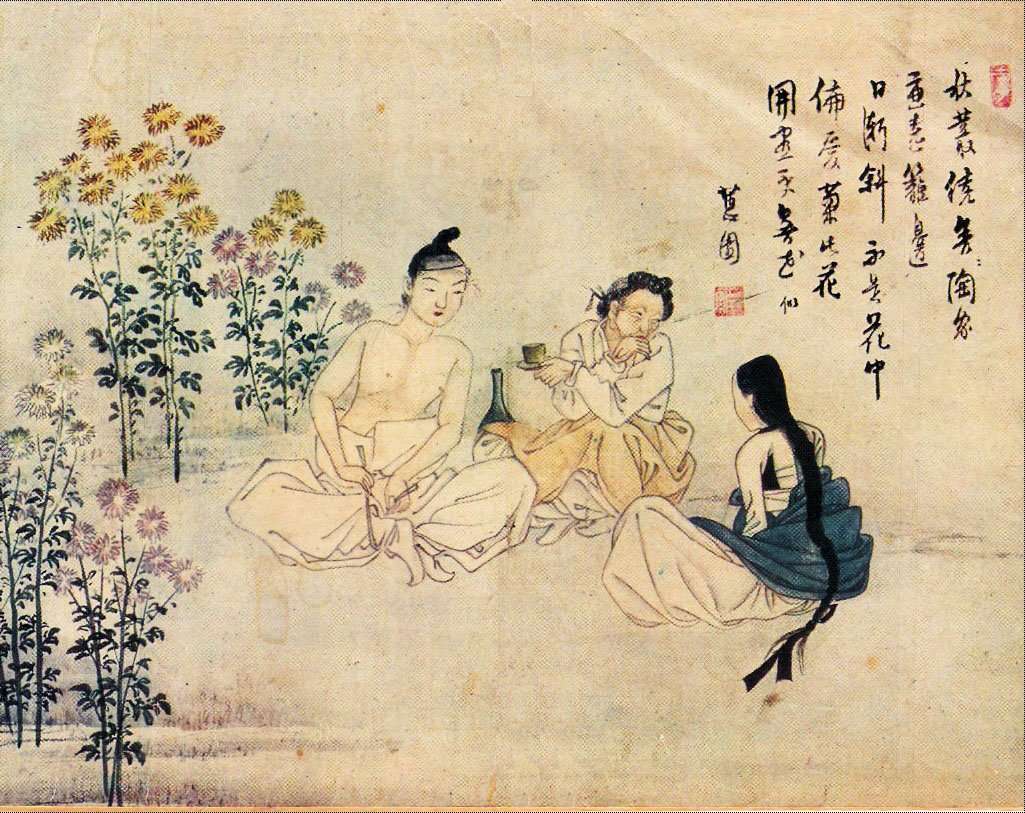 秋叢繞舍陶家
遍繞籬邊
日漸斜 不是花中
偏愛菊此花
開盡更無花 似
蕙園